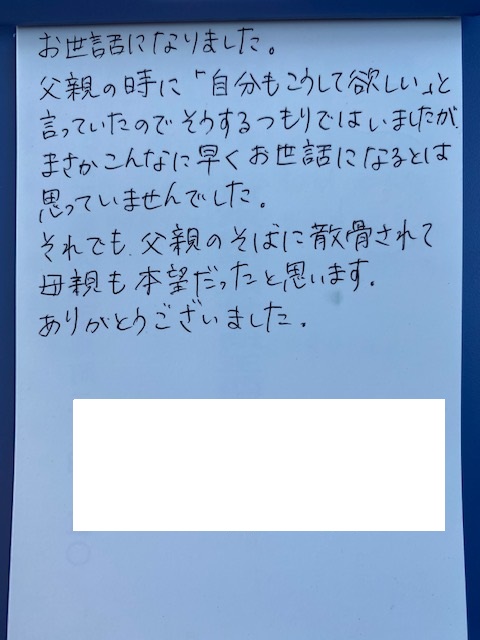 お世話になりました。
父親の時に「自分もこうして欲しい」と
言っていたのでそうするつもりではいましたが、
まさかこんなに早くお世話になるとは
思っていませんでした。
それでも、父親のそばに散骨されて
母親も本望だったと思います。
ありがとうございました。